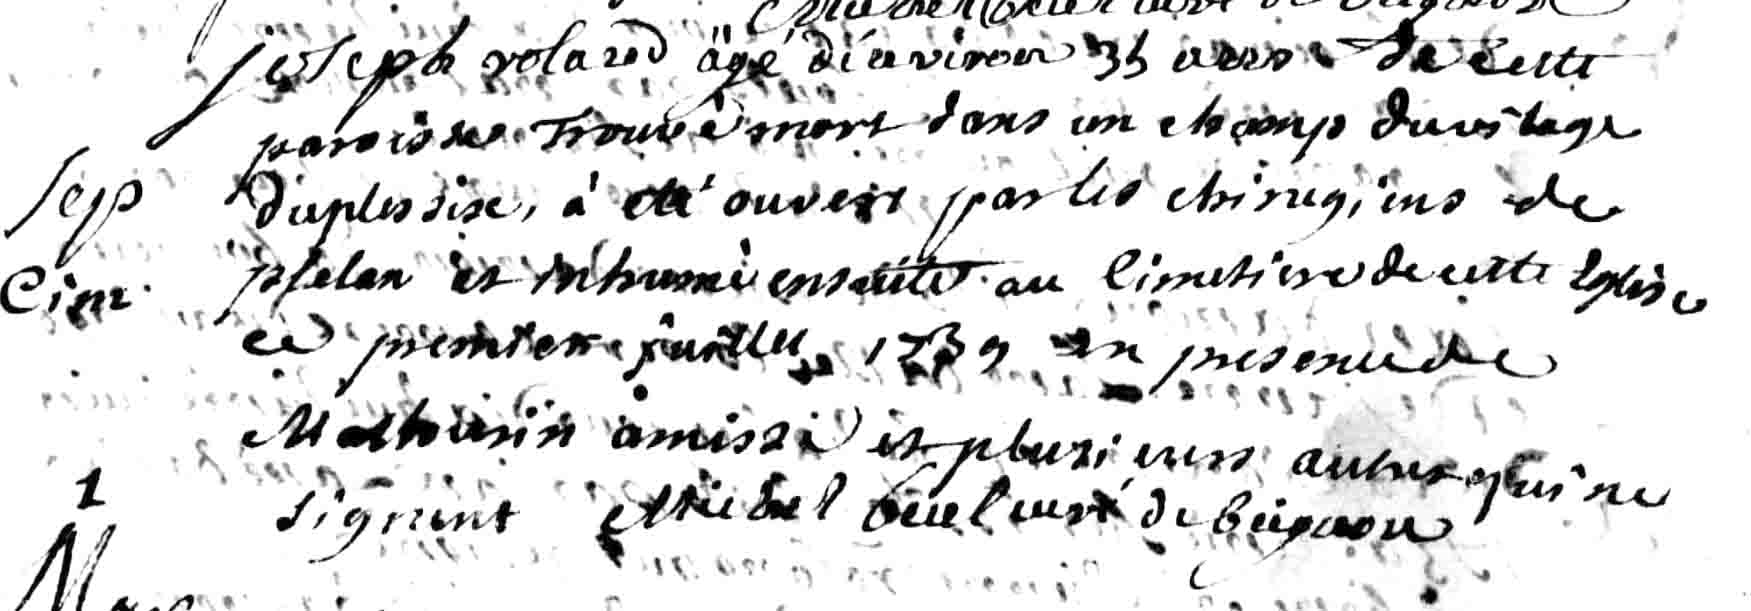 joseph volard âgé d'environ 35 ans de cette
paroisse trouvé mort dans un champ du vilage
Sep duplessix, à eté ouvert par les chirugiens de
Cim. et inhumé ensuitte au Cimetiere de cette Eglise
ce premier juillet 1739 en presence de
Mathurin amissé et plusieurs autres qui ne
1 signent Michel curé de